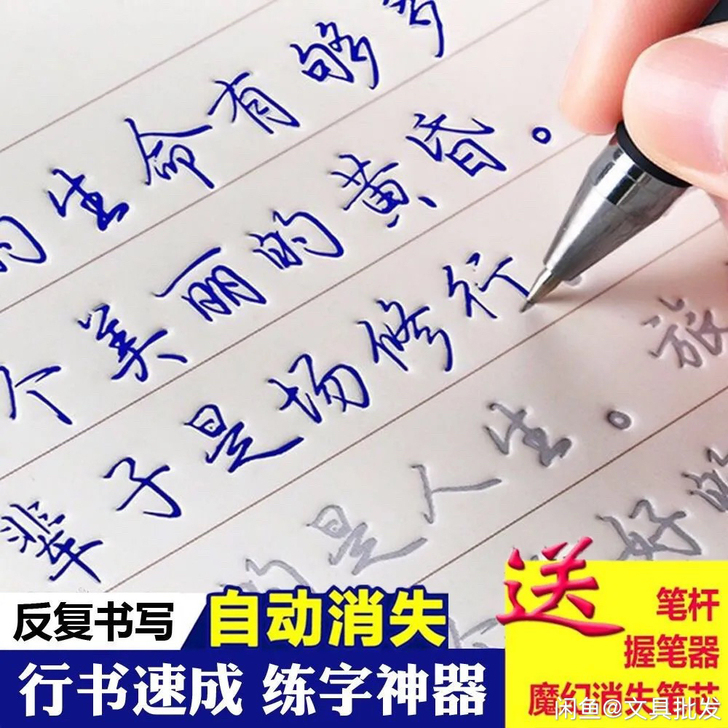 的生命有够多
个美丽的黄昏。
辈子是场修行
旅
的是人生。
好的
反复书写
自动消失
行书速成 练字神器
送
笔杆
握笔器
魔幻消失笔芯
闲鱼@文具批发